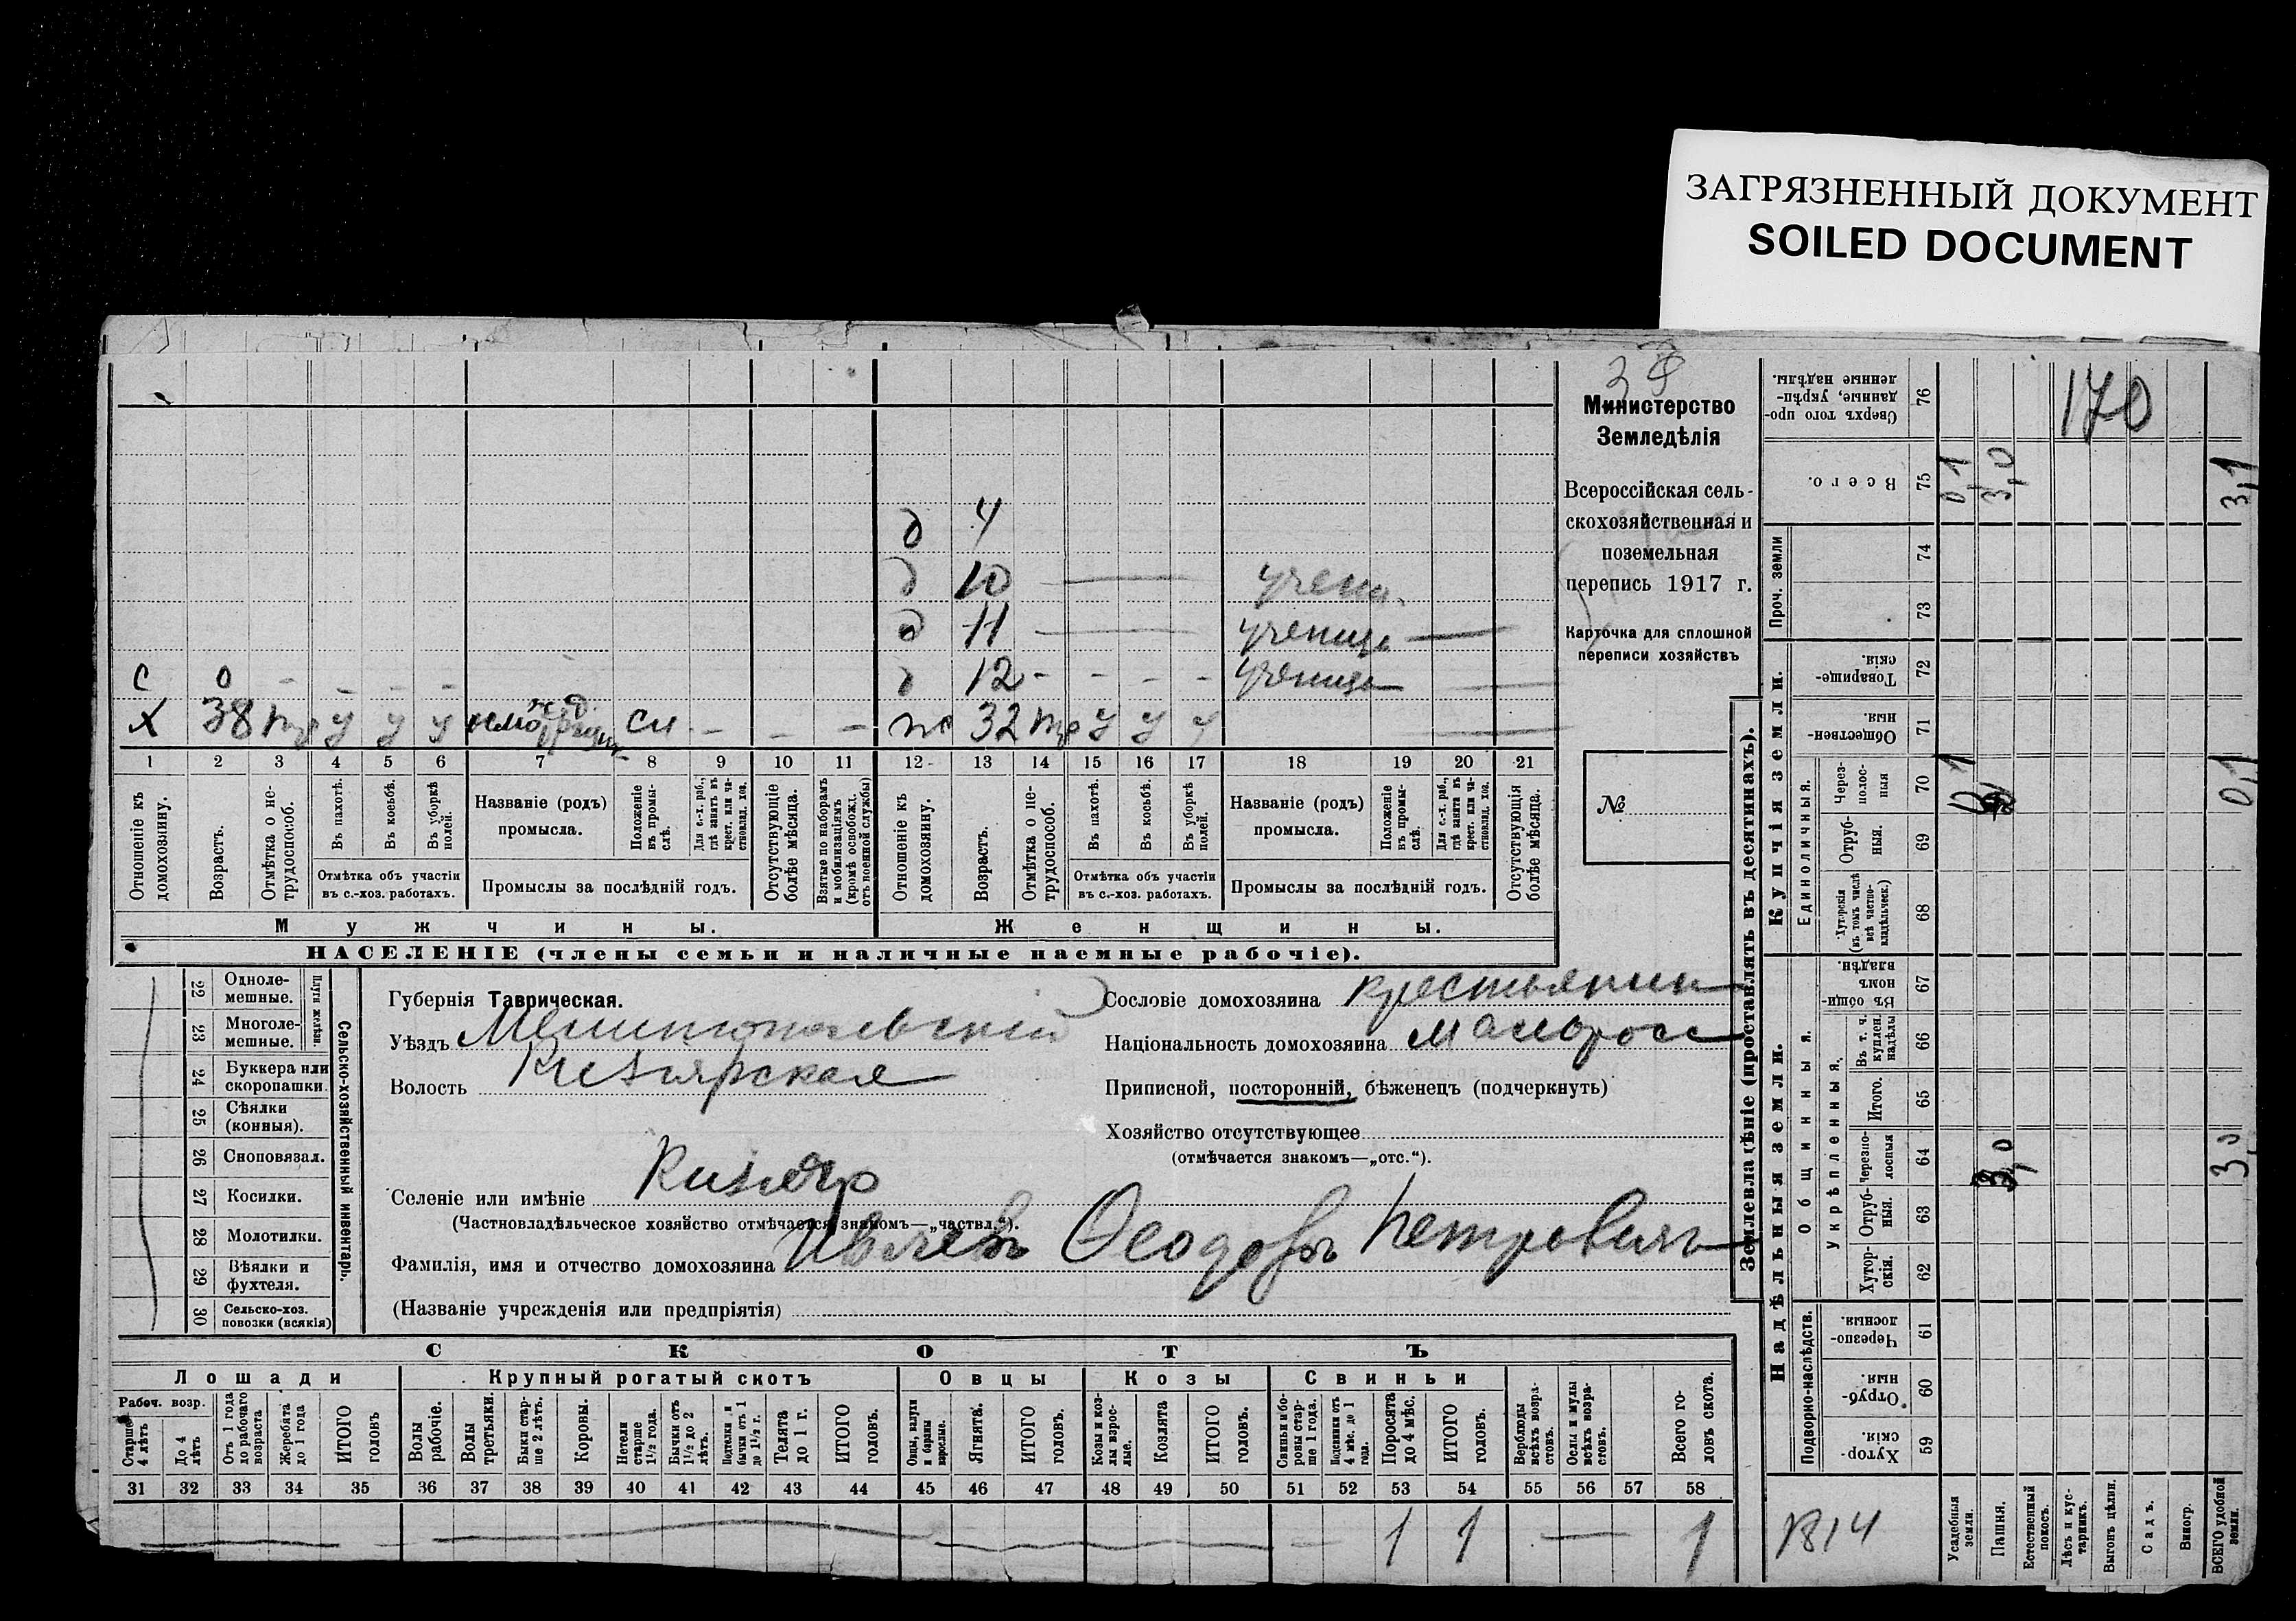 ЗАГРЯЗНЕННЫЙ ДОКУМЕНТ
SOILED DOCUMENT
Министерство
Земледѣлія
Всероссійская сель-
скохозяйственная и
поземельная
перепись 1917 г.
Карточка для сплошной
переписи хозяйствъ
№
д 4
д 10
д 11 — ученица —
с 0 - - - - д 12 - - - - ученица —
Х 38 тр у у у ж.д. сл. - - - ж 32 тр у у у
1 2 3 4 5 6 7 8 9 10 11 12 13 14 15 16 17 18 19 20 21
Отношеніе къ домохозяину.
Возрастъ.
Отмѣтка о не-трудоспособ.
Въ пахотѣ.
Въ косьбѣ.
Въ уборкѣ полей.
Отмѣтка объ участіи
въ с.-хоз. работахъ.
Названіе (родъ)
промысла.
Положеніе въ промы-слѣ.
Для с.-х. раб., гдѣ занятъ въ крест. или ча-стновлад. хоз.
Промыслы за послѣдній годъ.
Отсутствующіе болѣе мѣсяца.
Взятые по наборамъ и мобилизаціямъ (кромѣ освобожд. отъ военной службы)
Отношеніе къ домохозяину.
Возрастъ.
Отмѣтка о не-трудоспособ.
Въ пахотѣ.
Въ косьбѣ.
Въ уборкѣ полей.
Отмѣтка объ участіи
въ с.-хоз. работахъ.
Названіе (родъ)
промысла.
Положеніе въ промы-слѣ.
Для с.-х. раб., гдѣ занята въ крест. или ча-стновлад. хоз.
Промыслы за послѣдній годъ.
Отсутствующія болѣе мѣсяца.
Мужчины. Женщины.
НАСЕЛЕНІЕ (члены семьи и наличные наемные рабочіе).
22 Однолемешные.
23 Многолемешные.
Плуги желѣзн.
24 Буккера или скоропашки.
25 Сѣялки (конныя).
26 Сноповязал.
27 Косилки.
28 Молотилки.
29 Вѣялки и фухтеля.
30 Сельско-хоз. повозки (всякія)
Сельско-хозяйственный инвентарь.
Губернія Таврическая.
Уѣздъ Мелитопольскій
Волость Кизіярская
Селеніе или имѣніе Кизіяр
(Частновладѣльческое хозяйство отмѣчается знакомъ—„частвл.“).
Фамилія, имя и отчество домохозяина Феодоръ Петровичъ
(Названіе учрежденія или предпріятія)
Сословіе домохозяина крестьянин
Національность домохозяина малоросс
Приписной, посторонній, бѣженецъ (подчеркнуть)
Хозяйство отсутствующее
(отмѣчается знакомъ—„отс.“).
СКОТЪ
Лошади Крупный рогатый скотъ Овцы Козы Свиньи
Рабоч. возр.
Старше 4 лѣтъ
До 4 лѣтъ
Отъ 1 года до рабочаго возраста
Жеребята до 1 года
ИТОГО головъ
Волы рабочіе.
Волы третьяки.
Быки стар-ше 2 лѣтъ.
Коровы.
Нетели старше 1½ года.
Бычки отъ 1½ до 2 лѣтъ.
Подтелки и бычки отъ 1 до 1½ г.
Телята до 1 г.
ИТОГО головъ.
Овцы, валухи и бараны взрослые.
Ягнята.
ИТОГО головъ.
Козы и коз-лы взрос-лые.
Козлята
ИТОГО головъ.
Свиньи и бо-ровы стар-ше 1 года.
Подсвинки отъ 4 мѣс. до 1 года.
Поросята до 4 мѣс.
ИТОГО головъ.
Верблюды всѣхъ возра-стовъ.
Ослы и мулы всѣхъ возра-стовъ.
Всего го-ловъ скота.
31 32 33 34 35 36 37 38 39 40 41 42 43 44 45 46 47 48 49 50 51 52 53 54 55 56 57 58
1 1 — 1
Землевладѣніе (проставлять въ десятинахъ).
Надѣльныя земли.
Купчія земли.
Подворно-наслѣдств.
Общинныя.
Укрѣпленныя.
Единоличныя.
Проч. земли
Хутор-скія. 59
Отруб-ныя. 60
Черезпо-лосныя. 61
Хутор-скія. 62
Отруб-ныя. 63
Черезпо-лосныя 64 3,0 3,0
Итого. 65
Въ т. ч. куплен. надѣлы 66
Въ общи-номъ владѣн. 67
Хуторскія (въ томъ числѣ всѣ частно-владѣльческ.) 68
Отруб-ныя. 69
Через-полос-ныя 70 0,1 0,1
Обществен-ныя. 71
Товарище-скія. 72
73
74
Всего. 75 0,1 3,0 3,1
Сверхъ того про-данные, укрѣп-ленные надѣлы. 76
170
Усадебныя земли.
Пашня.
Естественный покосъ.
Лѣсъ и кус-тарникъ.
Выгонъ цѣлин.
Садъ.
Виногр.
ВСЕГО удобной земли.
1814